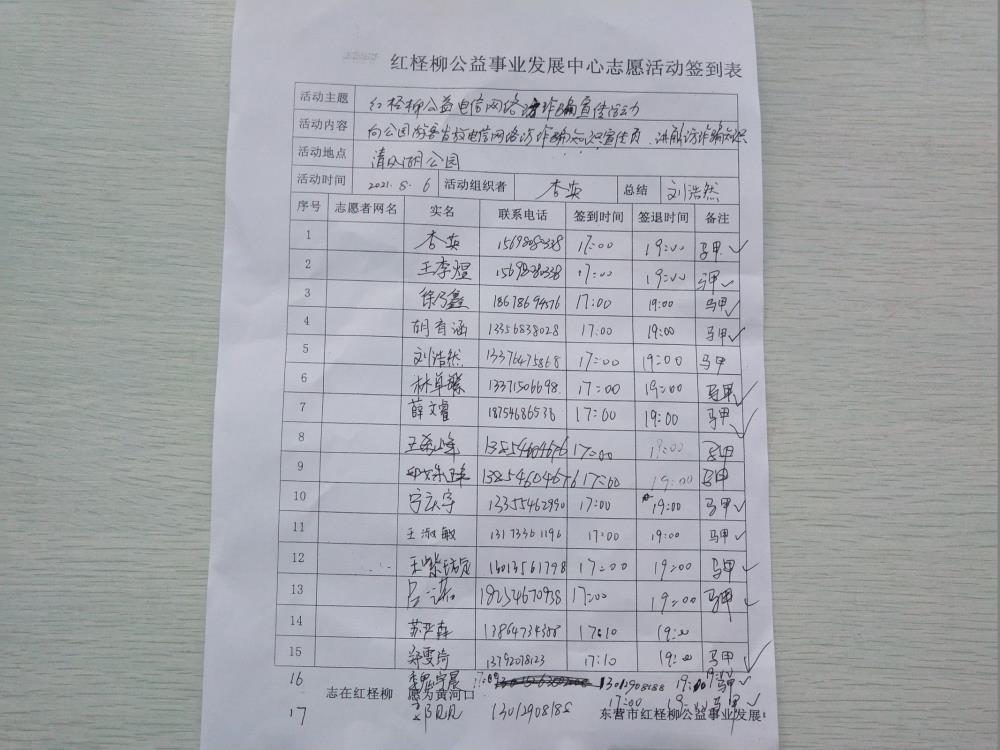 红柽柳公益事业发展中心志愿活动签到表
活动主题 红柽柳公益电信网络诈骗宣传活动
活动内容 向公园游客发放电信网络防诈骗知识宣传页、讲解防诈骗知识
活动地点 清风湖公园
活动时间 2021.8.6 活动组织者 李英 总结 刘浩然
序号 志愿者网名 实名 联系电话 签到时间 签退时间 备注
1 李英 17:00 19:00 马甲 ✓
2 王李煜 17:00 19:00 马甲 ✓
3 徐乃鑫 18678694576 17:00 19:00 马甲 ✓
4 胡育涵 13356838028 17:00 19:00 马甲 ✓
5 刘浩然 13376475868 17:00 19:00 马甲
6 13371506698 17:00 19:00 马甲 ✓
7 薛文睿 18754686536 17:00 19:00 马甲 ✓
8 17:00 19:00 马甲
9 17:00 19:00 马甲
10 宁庆宇 13355462990 17:00 19:00 马甲 ✓
11 王淑敏 13173361196 17:00 19:00 马甲 ✓
12 17:00 19:00 马甲 ✓
13 吕一诺 18254670938 17:00 19:00 马甲 ✓
14 17:10 19:00
15 郑雯琦 13792078123 17:10 19:00 马甲 ✓
16 17:09 13012908188 19:00 马甲 ✓
志在红柽柳 愿为黄河口
17 17:00 19:00 马甲 ✓
东营市红柽柳公益事业发展